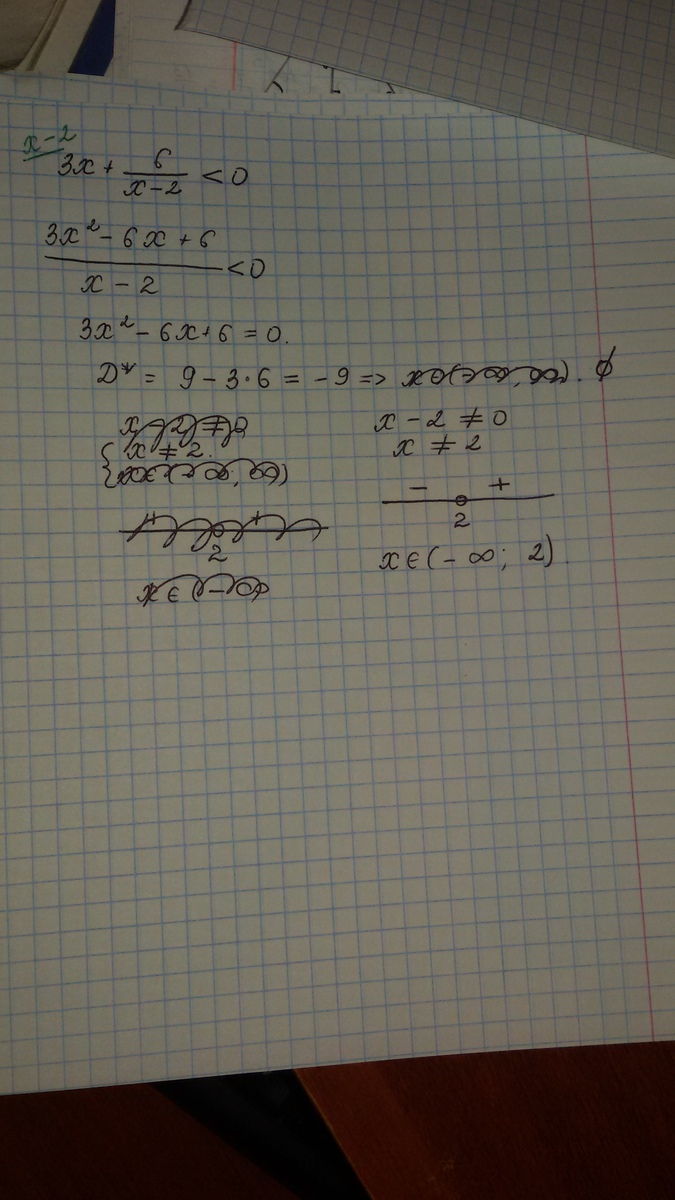 x-2
3x + 6/(x-2) < 0
(3x² - 6x + 6)/(x - 2) < 0
3x² - 6x + 6 = 0.
D* = 9 - 3·6 = -9 => ∅
x - 2 ≠ 0
x ≠ 2.
x ≠ 2
- +
2
2
x∈(-∞; 2)